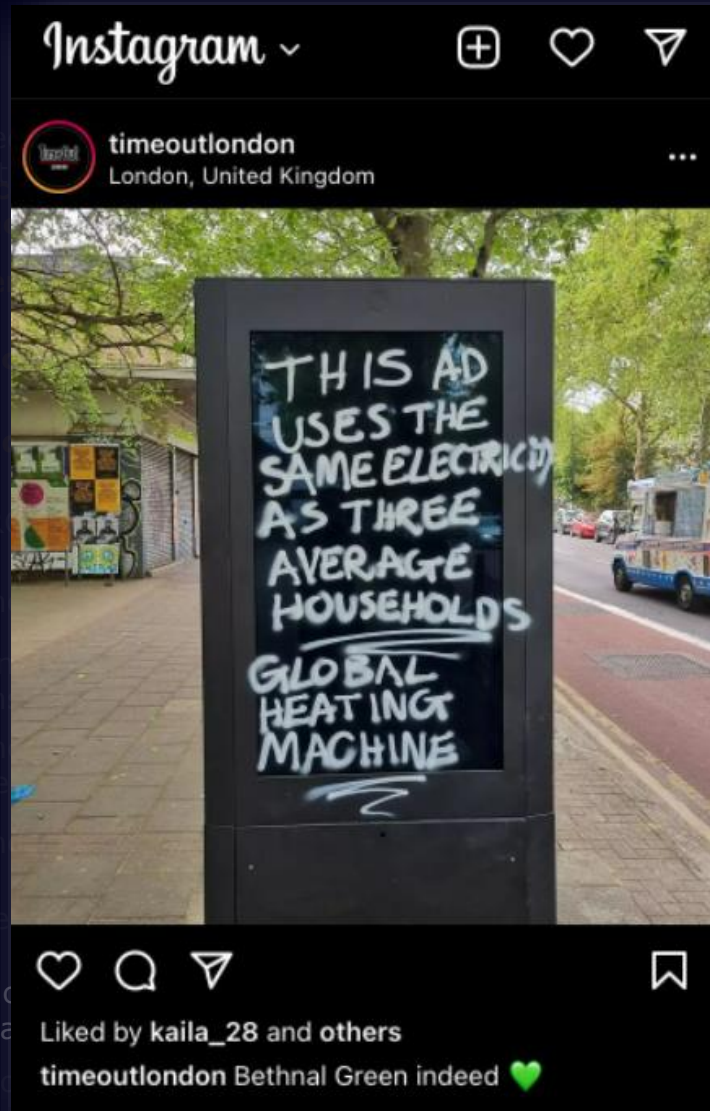 Instagram
timeoutlondon
London, United Kingdom
THIS AD
USES THE
SAME ELECTRICITY
AS THREE
AVERAGE
HOUSEHOLDS
GLOBAL
HEATING
MACHINE
Liked by kaila_28 and others
timeoutlondon Bethnal Green indeed 💚